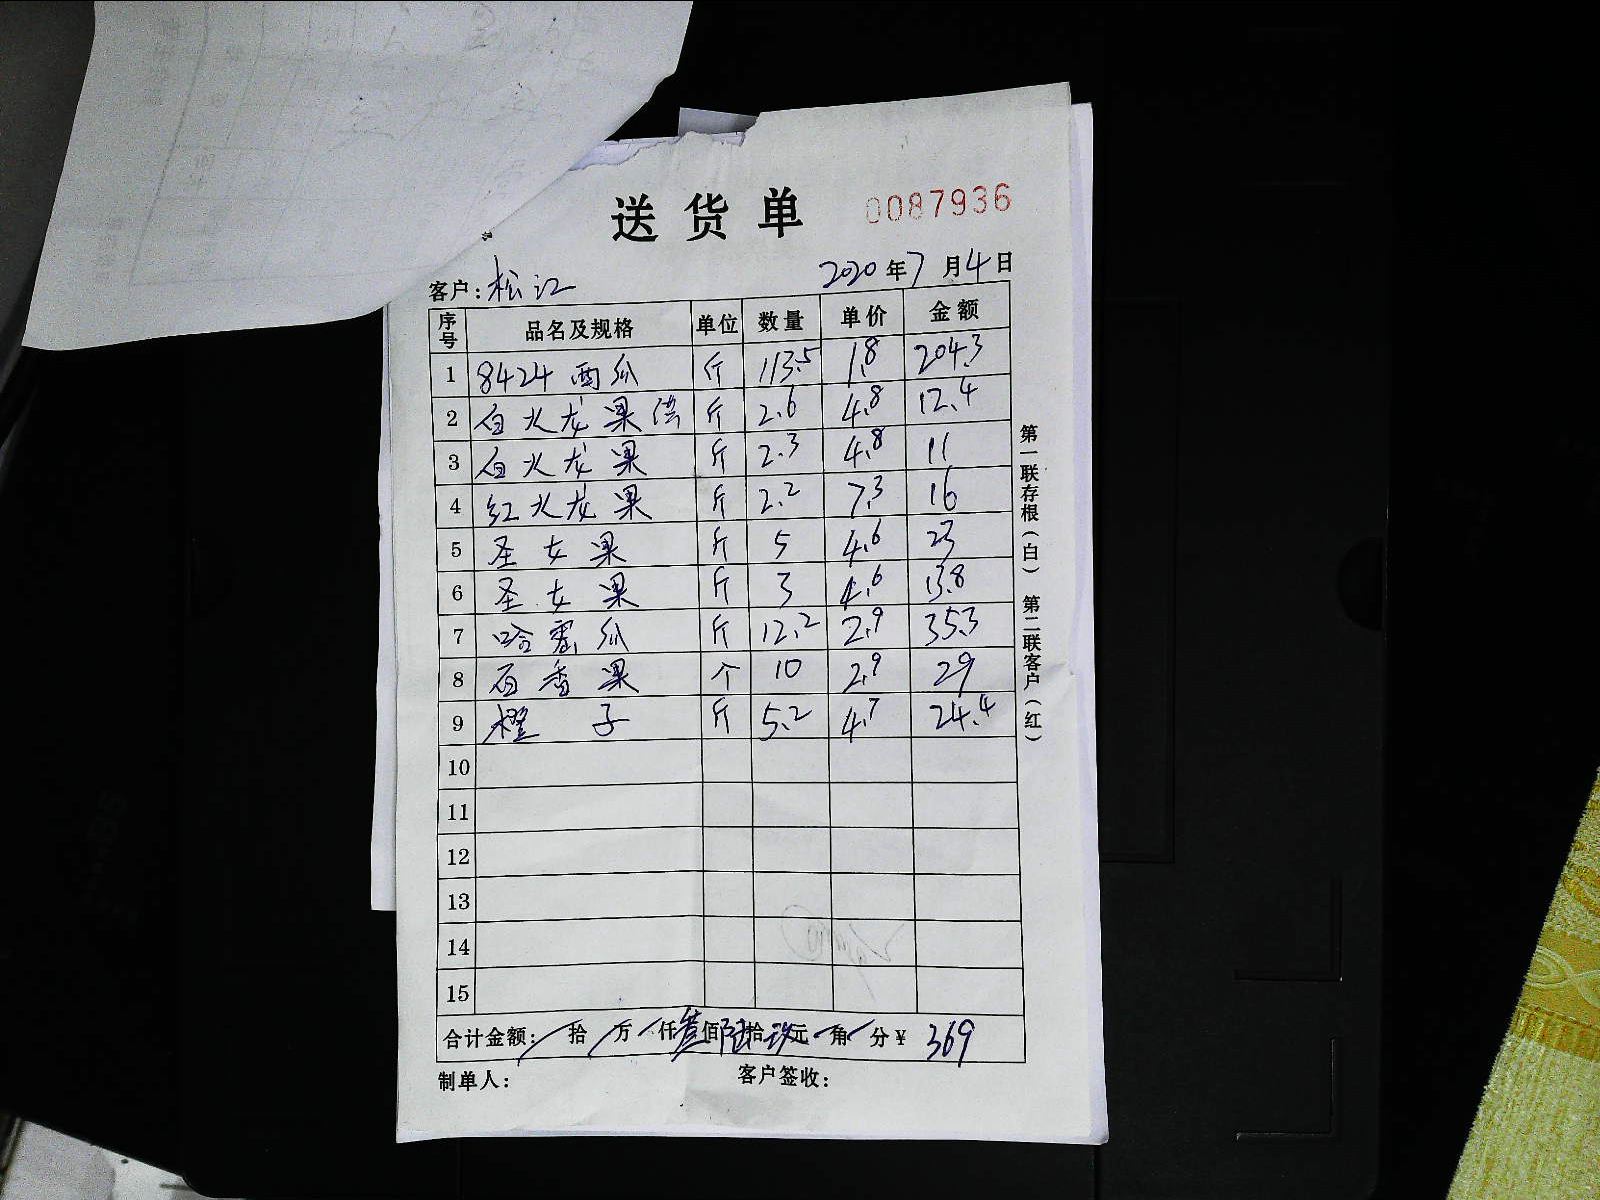 送货单 0087936
客户：松江 2020年7月4日
序号 品名及规格 单位 数量 单价 金额
1 8424西瓜 斤 113.5 1.8 204.3
2 白火龙果 斤 2.6 4.8 12.4
3 白火龙果 斤 2.3 4.8 11
4 红火龙果 斤 2.2 7.3 16
5 圣女果 斤 5 4.6 23
6 圣女果 斤 3 4.6 13.8
7 哈密瓜 斤 12.2 2.9 35.3
8 百香果 个 10 2.9 29
9 橙子 斤 5.2 4.7 24.4
10
11
12
13
14
15
合计金额： 拾 万 仟叁佰陆拾玖元 角 分￥ 369
制单人： 客户签收：
第一联存根（白） 第二联客户（红）